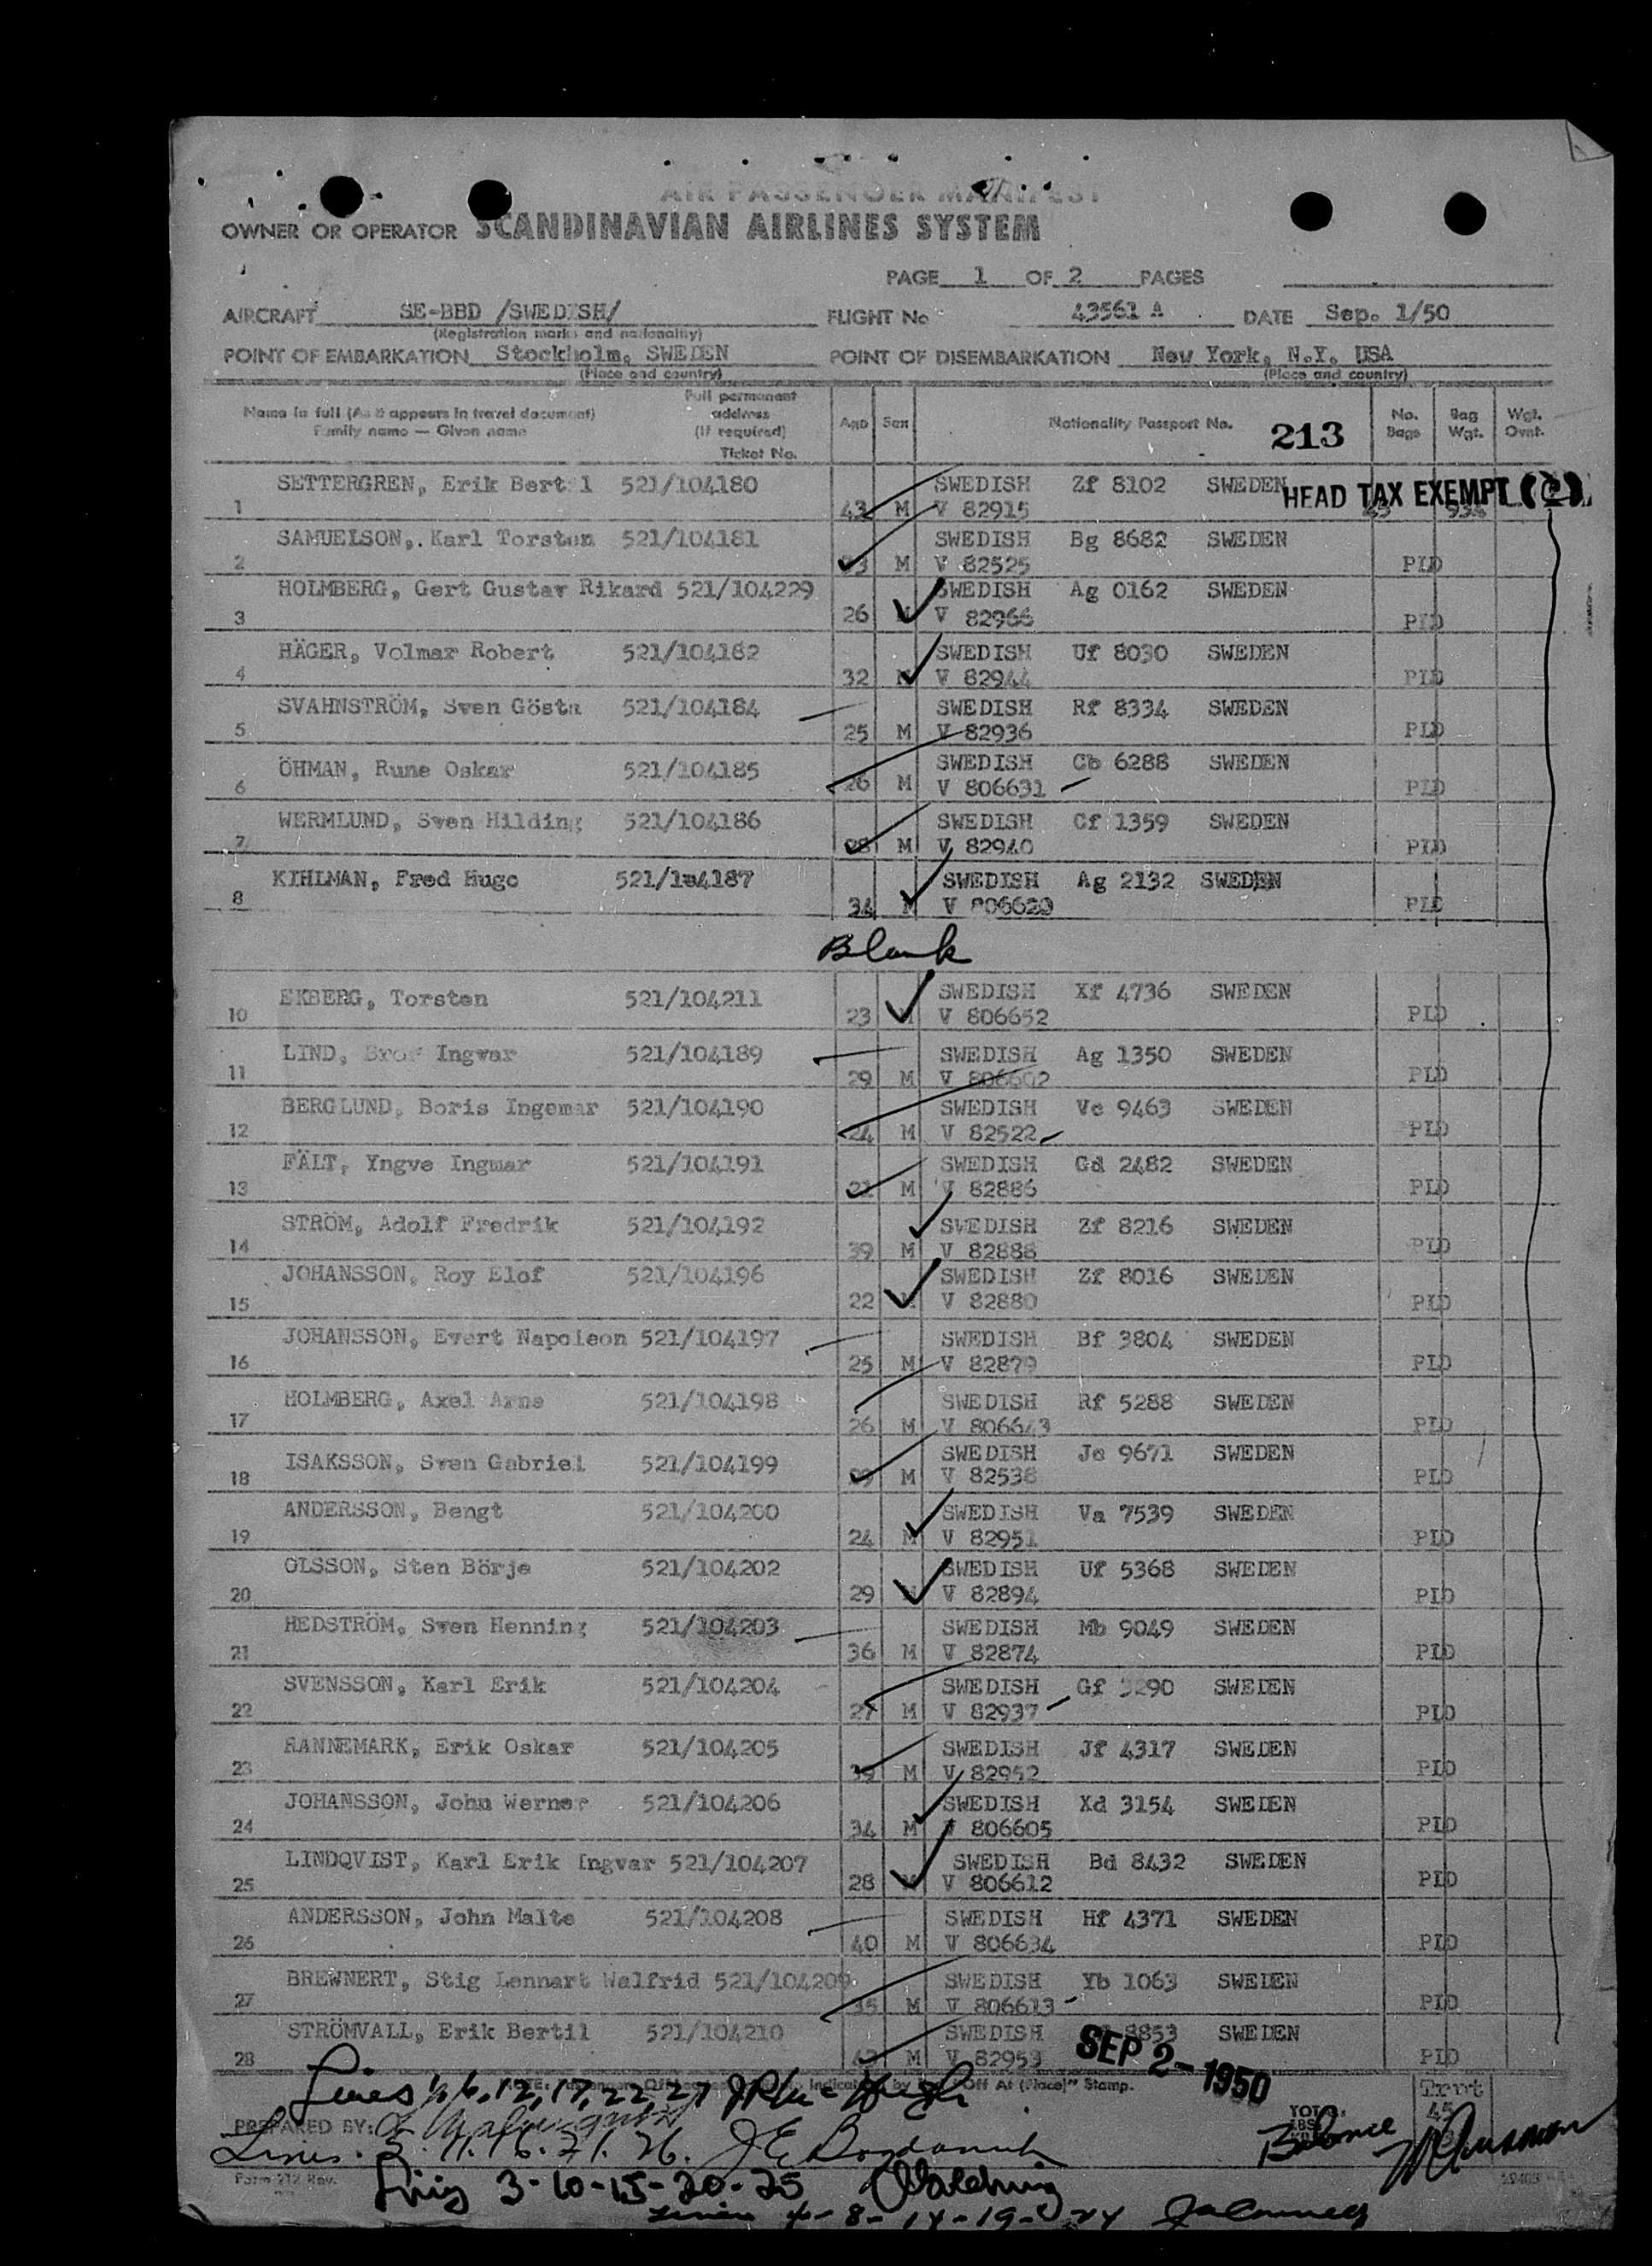 AIR PASSENGER MANIFEST
OWNER OR OPERATOR SCANDINAVIAN AIRLINES SYSTEM
PAGE 1 OF 2 PAGES
AIRCRAFT SE-BBD /SWEDISH/ FLIGHT No 43561 A DATE Sep. 1/50
(Registration marks and nationality)
POINT OF EMBARKATION Stockholm, SWEDEN POINT OF DISEMBARKATION New York, N.Y. USA
(Place and country) (Place and country)
Name in full (As it appears in travel document) Family name — Given name Full permanent address (If required) Ticket No. Age Sex Nationality Passport No. 213 No. Bags Bag Wgt. Wgt. Ovnt.
1 SETTERGREN, Erik Bertil 521/104180 43 M SWEDISH Zf 8102 SWEDEN HEAD TAX EXEMPT (2)
V 82915
2 SAMUELSON, Karl Torsten 521/104181 M SWEDISH Bg 8682 SWEDEN
V 82525 PLD
3 HOLMBERG, Gert Gustav Rikard 521/104229 26 M SWEDISH Ag 0162 SWEDEN
V 82966 PLD
4 HÄGER, Volmar Robert 521/104182 32 M SWEDISH Uf 8030 SWEDEN
V 82944 PLD
5 SVAHNSTRÖM, Sven Gösta 521/104184 25 M SWEDISH Rf 8334 SWEDEN
V 82936 PLD
6 ÖHMAN, Rune Oskar 521/104185 26 M SWEDISH Cb 6288 SWEDEN
V 806631 PLD
7 WERMLUND, Sven Hilding 521/104186 28 M SWEDISH Cf 1359 SWEDEN
V 82940 PLD
8 KIHLMAN, Fred Hugo 521/104187 34 M SWEDISH Ag 2132 SWEDEN
V 806620 PLD
Blank
10 EKBERG, Torsten 521/104211 23 M SWEDISH Xf 4736 SWEDEN
V 806652 PLD
11 LIND, Bror Ingvar 521/104189 29 M SWEDISH Ag 1350 SWEDEN
V 806602 PLD
12 BERGLUND, Boris Ingemar 521/104190 24 M SWEDISH Vc 9463 SWEDEN
V 82522 PLD
13 FÄLT, Yngve Ingmar 521/104191 21 M SWEDISH Gd 2482 SWEDEN
V 82886 PLD
14 STRÖM, Adolf Fredrik 521/104192 39 M SWEDISH Zf 8216 SWEDEN
V 82888 PLD
15 JOHANSSON, Roy Elof 521/104196 22 M SWEDISH Zf 8016 SWEDEN
V 82880 PLD
16 JOHANSSON, Evert Napoleon 521/104197 25 M SWEDISH Bf 3804 SWEDEN
V 82879 PLD
17 HOLMBERG, Axel Arne 521/104198 26 M SWEDISH Rf 5288 SWEDEN
V 806643 PLD
18 ISAKSSON, Sven Gabriel 521/104199 M SWEDISH Je 9671 SWEDEN
V 82538 PLD
19 ANDERSSON, Bengt 521/104200 24 M SWEDISH Va 7539 SWEDEN
V 82951 PLD
20 OLSSON, Sten Börje 521/104202 29 M SWEDISH Uf 5368 SWEDEN
V 82894 PLD
21 HEDSTRÖM, Sven Henning 521/104203 36 M SWEDISH Mb 9049 SWEDEN
V 82874 PLD
22 SVENSSON, Karl Erik 521/104204 27 M SWEDISH Gf 3290 SWEDEN
V 82937 PLD
23 RANNEMARK, Erik Oskar 521/104205 39 M SWEDISH Jf 4317 SWEDEN
V 82952 PLD
24 JOHANSSON, John Werner 521/104206 34 M SWEDISH Xd 3154 SWEDEN
V 806605 PLD
25 LINDQVIST, Karl Erik Ingvar 521/104207 28 M SWEDISH Bd 8432 SWEDEN
V 806612 PLD
26 ANDERSSON, John Malte 521/104208 40 M SWEDISH Hf 4371 SWEDEN
V 806634 PLD
27 BREWNERT, Stig Lennart Walfrid 521/104209 35 M SWEDISH Yb 1063 SWEDEN
V 806613 PLD
28 STRÖMVALL, Erik Bertil 521/104210 M SWEDISH 8853 SWEDEN
V 82953 PLD
SEP 2-1950
Lines 1, 6, 12, 17, 22, 27
Off At (Place)" Stamp.
PREPARED BY:
Lines. 5. 11. 16. 21. 26.
Balance
Form 212 Rev.
3-10-15-20-25
Lines 4-8-14-19-24